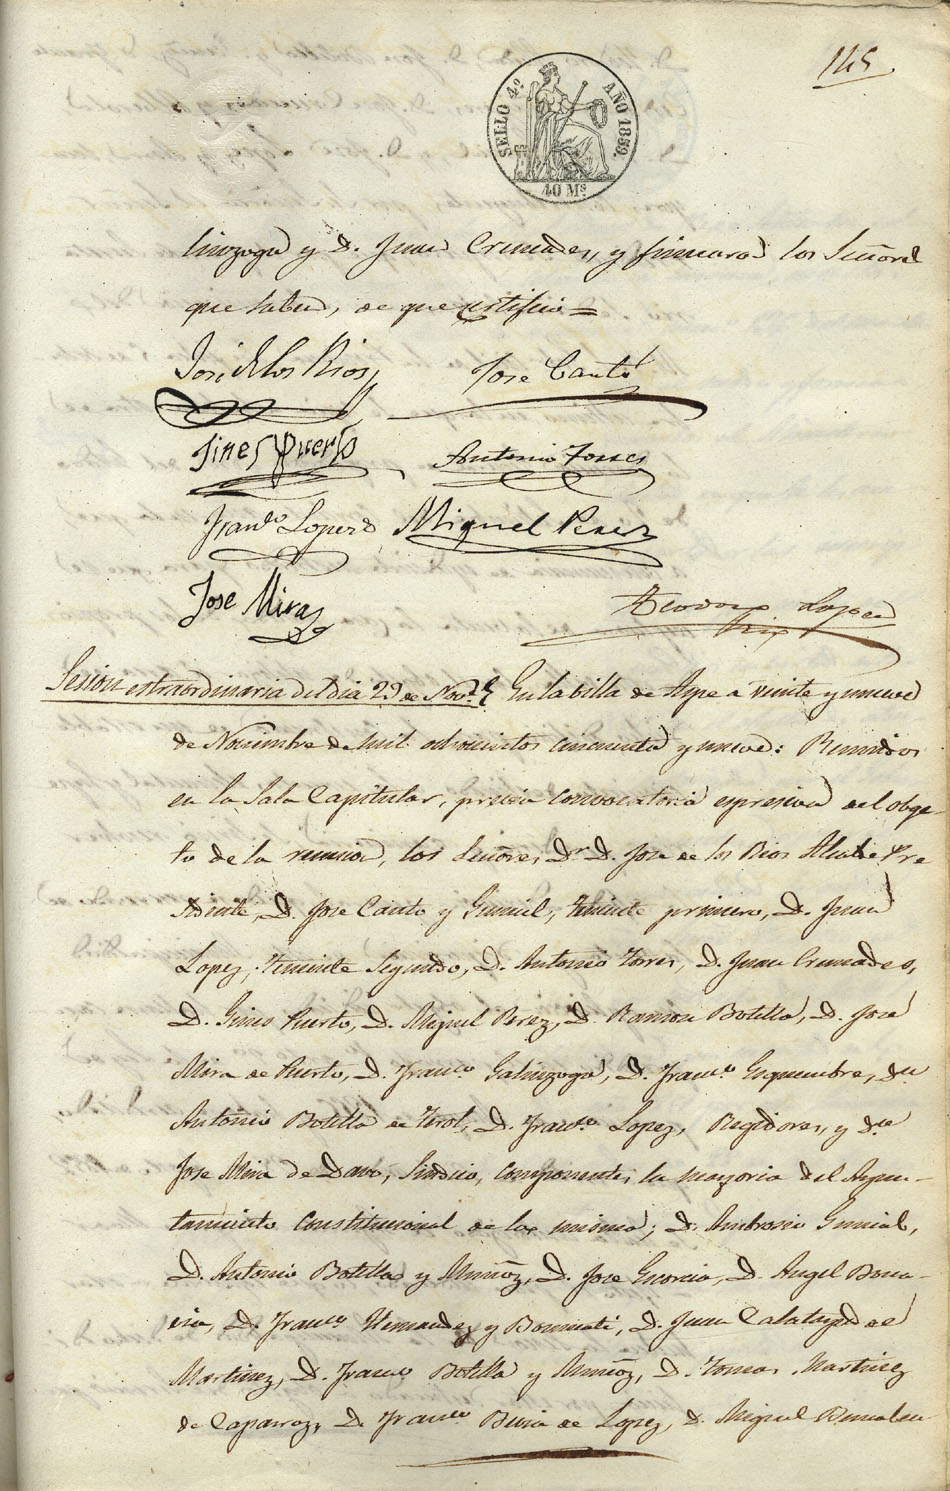 145
SELLO 4º AÑO 1859.
40 Ms
linzoga y D. Juan Cremades, y firmaron los Señores
que saben, de que certifico =
José de los Rios
Jose Cantó
Jines Puerto
Antonio Torres
Franco Lopez
Miguel Perez
Jose Mira
Teodoro Lopez
Sesion estraordinaria del dia 29 de Nove. En la billa de Aspe a veinte y nueve
de Noviembre de mil ochocientos cincuenta y nueve: Reunidos
en la Sala Capitular, previa convocatoria espresiva del obge-
to de la reunion, los Señores Dr. D. Jose de los Rios Alcalde Pre
sidente, D. Jose Canto y Gumiel, teniente primero, D. Juan
Lopez, teniente Segundo, D. Antonio Torres, D. Juan Cremades,
D. Gines Puerto, D. Miguel Perez, D. Ramon Botella, D. José
Mira de Puerto, D. Franco Galinzoga, D. Franco Esquembre, Dn
Antonio Botella de Terol, D. Franco Lopez, Regidores, y Dn
Jose Mira de Davo, Sindico, componentes la mayoria del Ayun-
tamiento Constitucional de la misma; D. Ambrosio Gumiel,
D. Antonio Botella y Muñoz, D. Jose Escorcia, D. Angel
D. Franco Hernandez y D. Juan Calatayud de
Martinez, D. Franco Botella y Muñoz, D. Tomas Martinez
de Caparroz, D. Franco de Lopez, D. Miguel